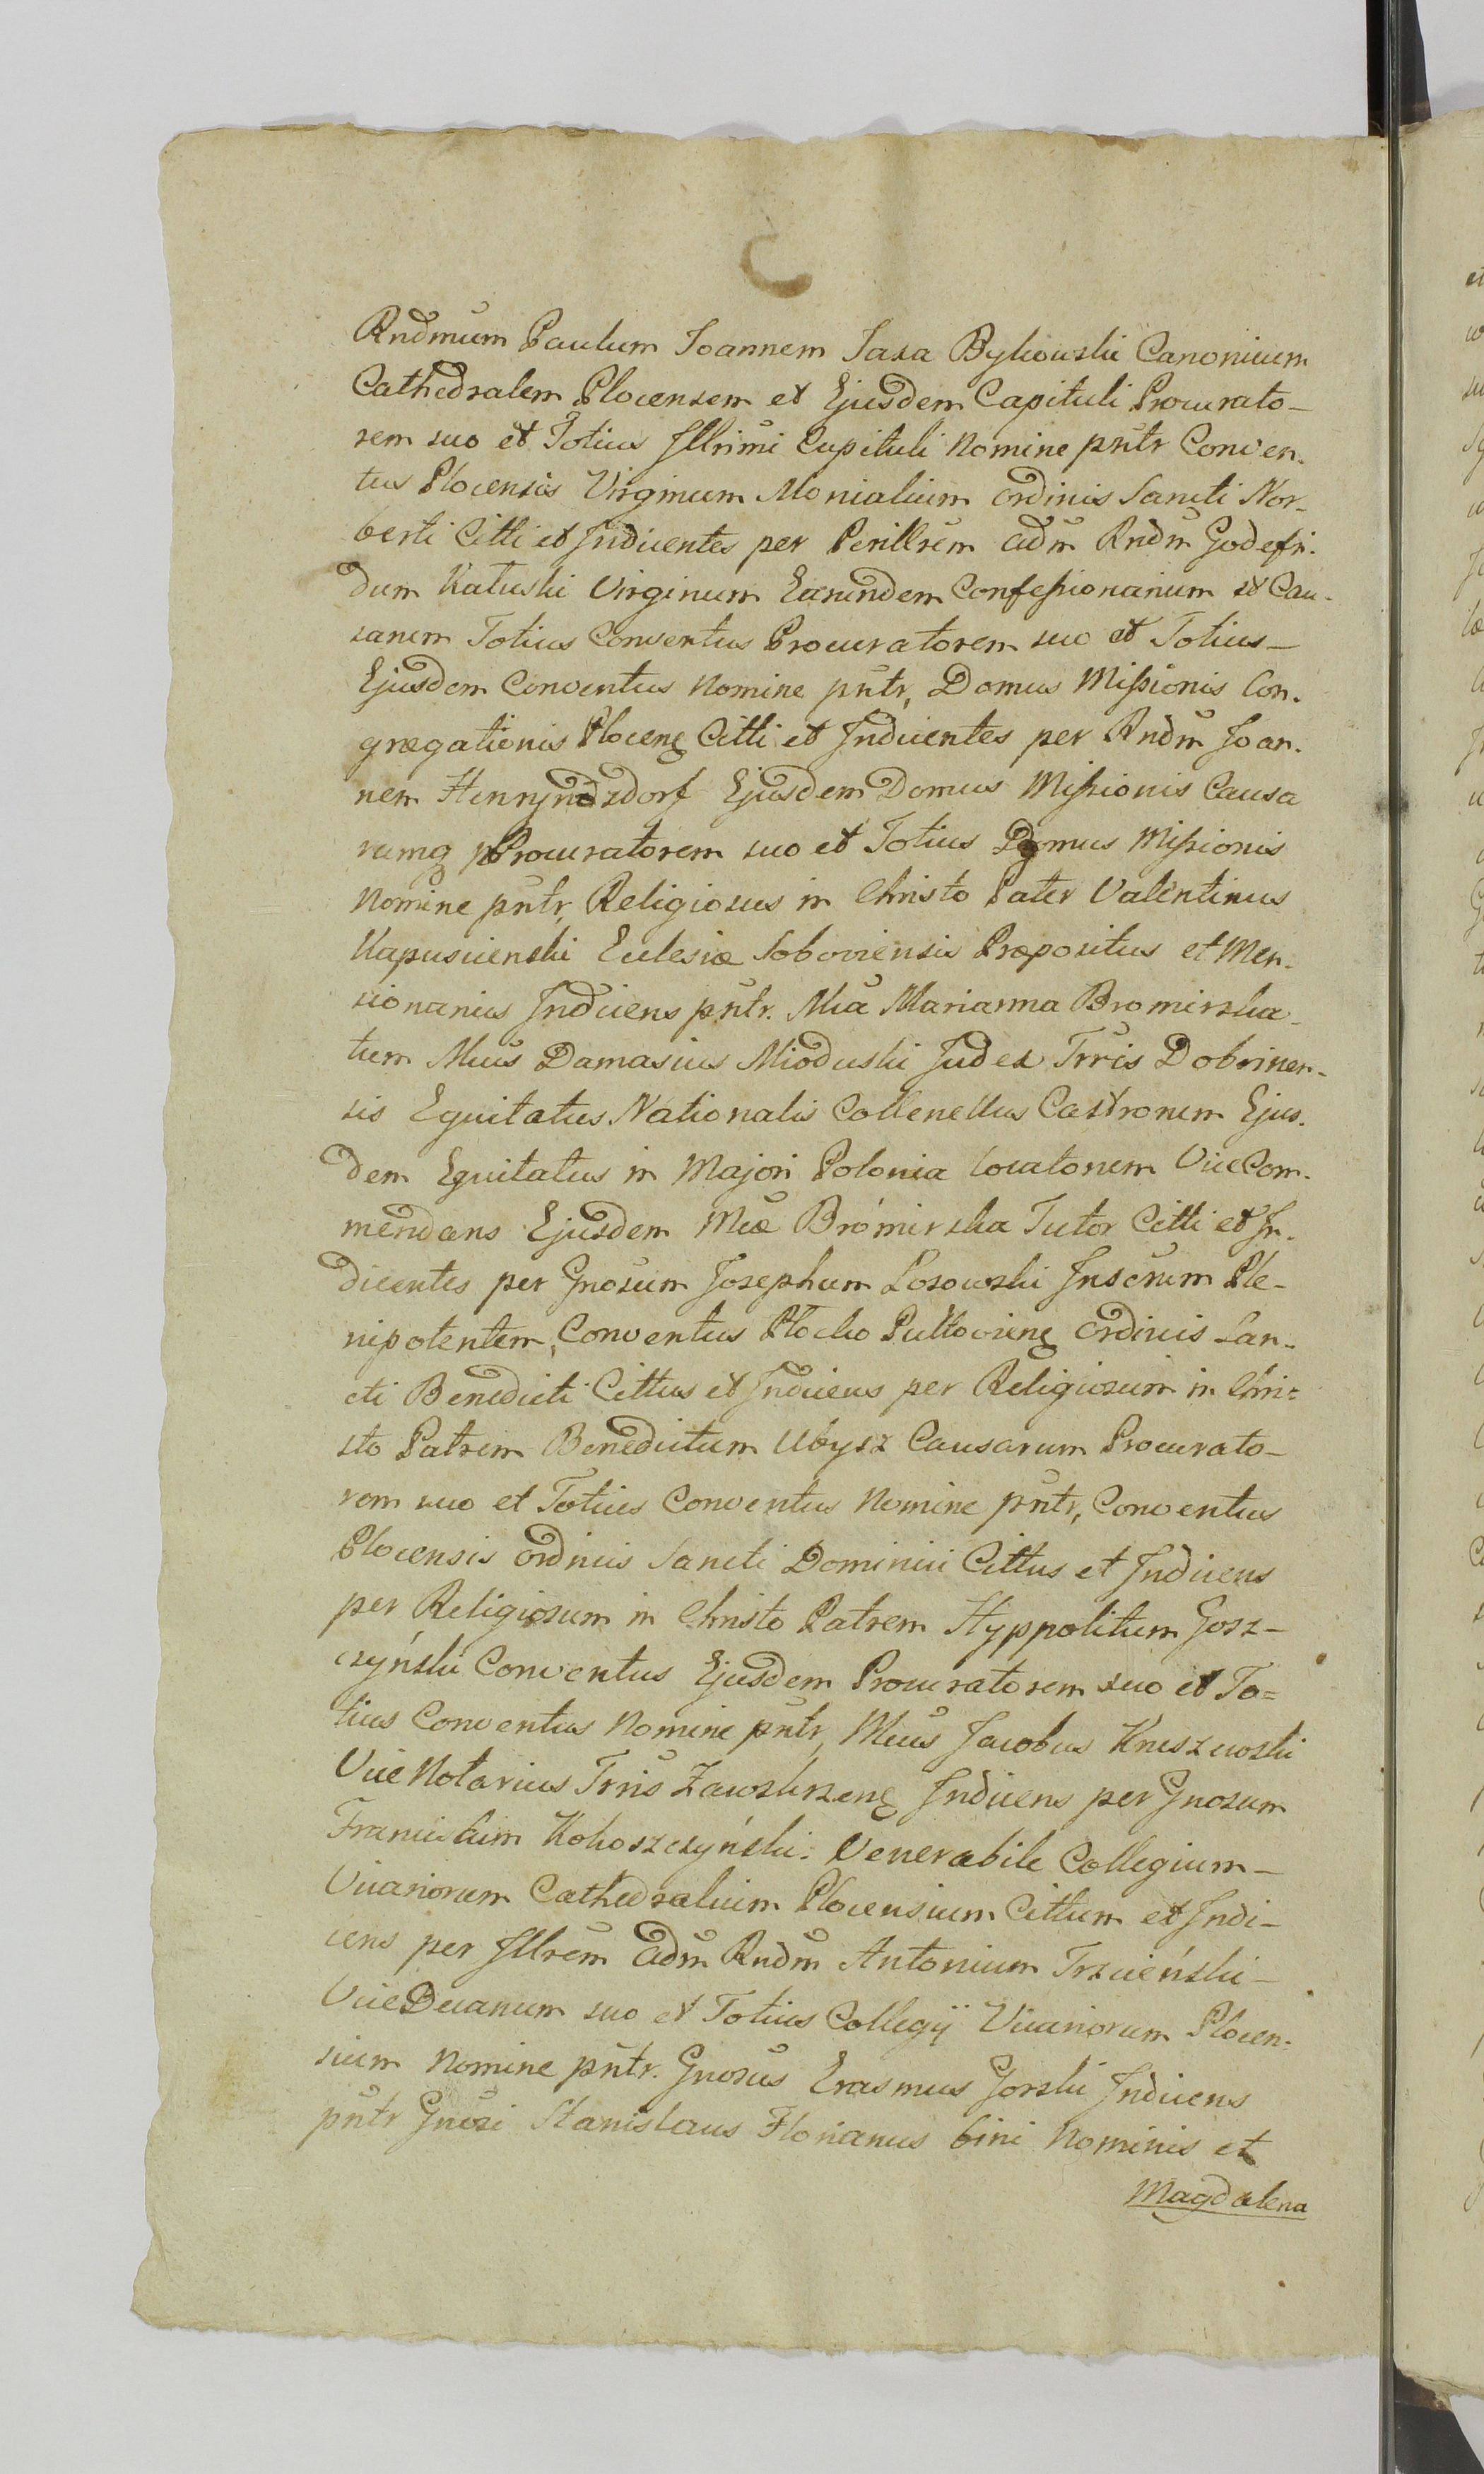 Rndmum Paulum Joannem Jaxa Bykowski Canonicum
Cathedralem Plocensem et Ejusdem Capituli Procurato-
rem suo et Totius Illrimi Capituli Nomine pntr Conven-
tus Plocensis Virginum Monialium Ordinis Sancti Nor-
berti Citti et Indicentes per Perillrem adm Rndm Godefri-
dum Katuski Virginum Earundem Confessionarium et Cau-
sarum Totius Conventus Procuratorem suo et Totius-
Ejusdem Conventus Nomine pntr, Domus Missionis Con-
gregationis Plocenę Citti et Indicentes per Rndm Joan-
nem Ejusdem Domus Missionis Causa
rumq Procuratorem suo et Totius Domus Missionis
Nomine pntr, Religiosus in Christo Pater Valentinus
Kapuscienski Eclesiæ Præpositus et Men-
sionarius Indicens pntr. Mĩa Marianna Bromirska
tum Mĩus Damasius Mioduski Judex Trris Dobrinen-
sis Equitatus Nationalis Collenellus Castrorum Ejus-
dem Equitatus in Majori Polonia Locatorum Vice Com-
mendans Ejusdem Mĩæ Brómirska Tutor Citti et In-
dicentes per Gnosum Josephum Losowski Inscrum Ple-
nipotentem, Conventus Plocko Pultovienę Ordinis San-
cti Benedicti Cittus et Indicens per Religiosum in Chri=
sto Patrem Benedictum Ubysz Causarum Procurato-
rem suo et Totius Conventus Nomine pntr, Conventus
Plocensis Ordinis Sancti Dominici Cittus et Indicens
per Religiosum in Christo Patrem Hyppolitum Gosz-
czyński Conventus Ejusdem Procuratorem suo et To=
tius Conventus Nomine pntr, Mĩus Jacobus Kruszewski
Vice Notarius Trris Zawskrzenę Indicens per Gnosum
Franciscum Kokoszczyński. Venerabile Collegium-
Vicariorum Cathedralium Plocensium Cittum et Indi-
cens per Illrem adm Rndm Antonium Trzcieński-
Vice Decanum suo et Totius Collegij Vicariorum Plocen-
sium Nomine pntr. Gnosus Erasmus Gorski Indicens
pntr Gnosi Stanislaus Florianus bini Nominis et
Magdalena